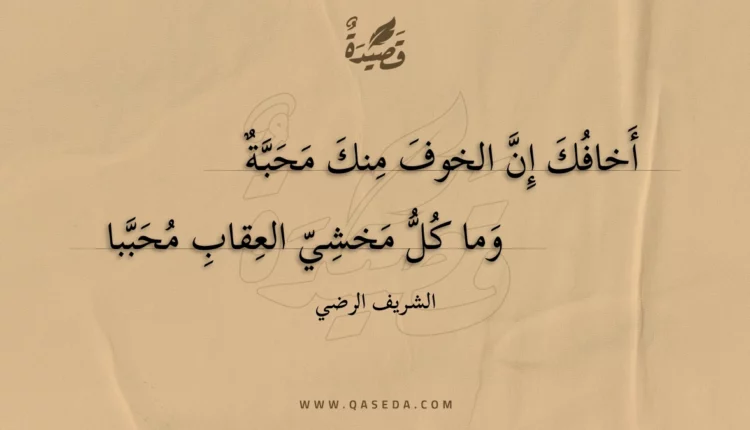 قَصِيْدَةٌ
أَخافُكَ إِنَّ الخوفَ مِنكَ مَحَبَّةٌ
وَما كُلُّ مَخشِيّ العِقابِ مُحَبَّبا
الشريف الرضي
WWW.QASEDA.COM